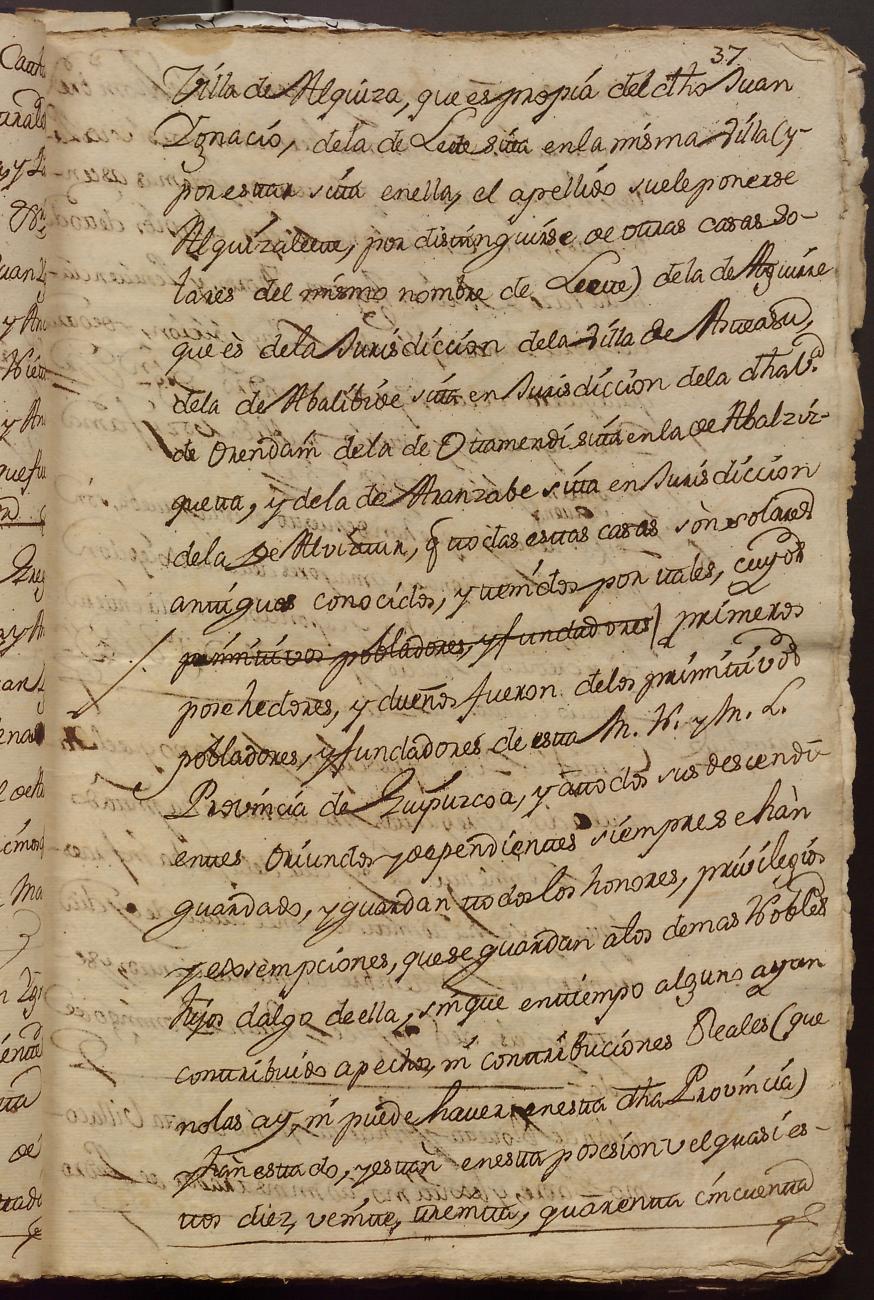 37
Villa de Alquiza, que es propia del dho Juan
Ygnacio, dela de Lete sita enla misma Villa (y
por estar sita enella, el apellido suele ponerse
Alquizalete, por distinguirse de otras casas so-
lares del mismo nombre de Leete) dela de Aguirre
que és dela Jurisdiccion dela Villa de Asteasu,
dela de Abalibide sita en Jurisdiccion dela dha V.ª
de Orendain dela de Otamendi sita enla de Abalzis-
queta, y dela de Aranzabe sita en Jurisdiccion
dela de Alviztur, q̃ todas estas casas sòn solares
antiguos conocidos, y tenidos por tales, cuyos
primitivos pobladores, y fundadores) primeros
posehedores, y dueños fueron delos primitivos
pobladores, y fundadores de esta M. N. y M. L.
Provincia de Guipuzcoa, y atodos sus descendi-
entes oriundos y dependientes siempre se hàn
guardado, y guardan todos los honores, privilegios
y exsempciones, que se guardan alos demas Nobles
hijos dalgo de ella, sin que en tiempo alguno ayan
contribuido a pechos, ni contribuciones Reales (que
nolas ay, ni puede haver enesta dha Provincia)
y han estado, y estan enesta posesion vel quasi es-
tos diez, veinte, treinta, quarenta cincuenta